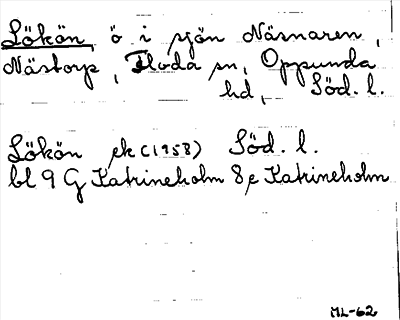 Lökön, ö i sjön Näsnaren,
Nästorp, Floda sn, Oppunda
hd, Söd. l.
Lökön ek (1958) Söd. l.
bl 9 G Katrineholm 8 e Katrineholm
ML-62